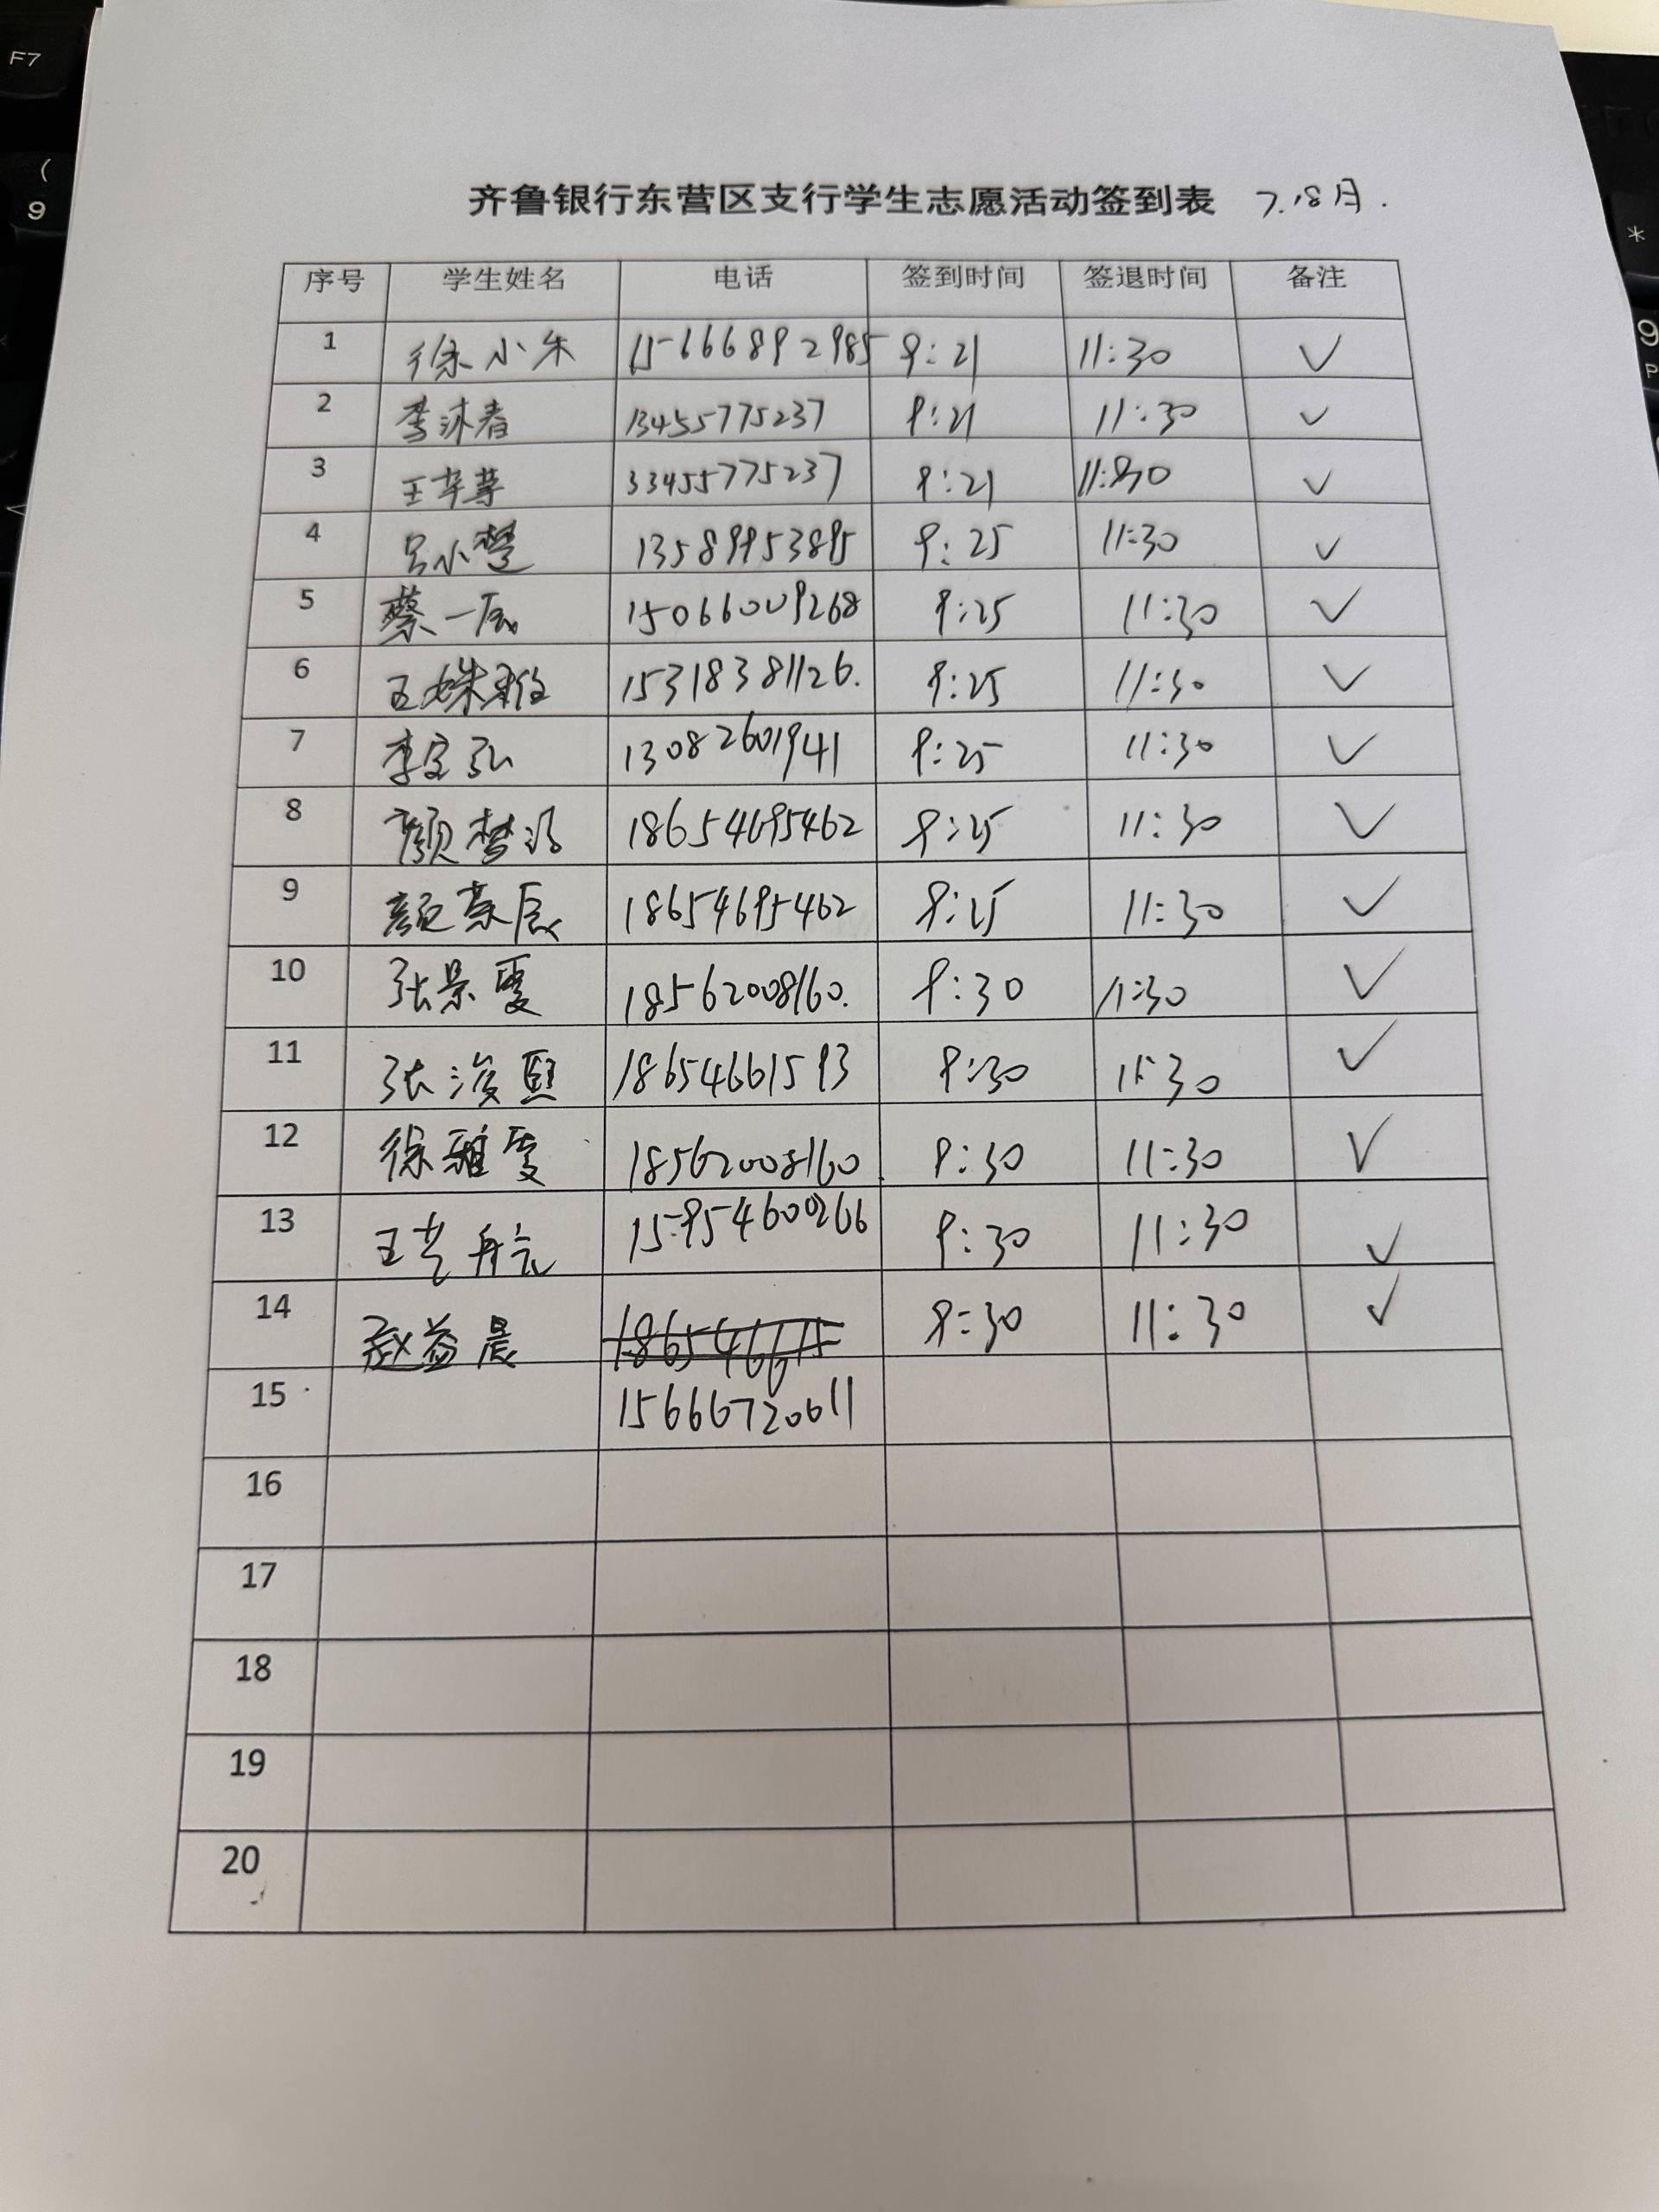 齐鲁银行东营区支行学生志愿活动签到表 7.18月.
序号 学生姓名 电话 签到时间 签退时间 备注
1 徐小朱 15666892985 9:21 11:30 ✓
2 李沐春 13455775237 9:21 11:30 ✓
3 王 33455775237 9:21 11:30 ✓
4 吕小楚 13589953895 9:25 11:30 ✓
5 蔡一辰 15066009268 9:25 11:30 ✓
6 王姝 15318381126. 9:25 11:30 ✓
7 李宜弘 13082601941 9:25 11:30 ✓
8 颜梦 18654695462 9:25 11:30 ✓
9 颜荣辰 18654695462 9:25 11:30 ✓
10 张景雯 18562008160. 9:30 11:30 ✓
11 张浚熙 18654661593 9:30 11:30 ✓
12 徐雅雯 18562008160 9:30 11:30 ✓
13 王艺舟 15954600266 9:30 11:30 ✓
14 赵益晨 186546615 9:30 11:30 ✓
15 15666720611
16
17
18
19
20
F7
(
9
*
9
P